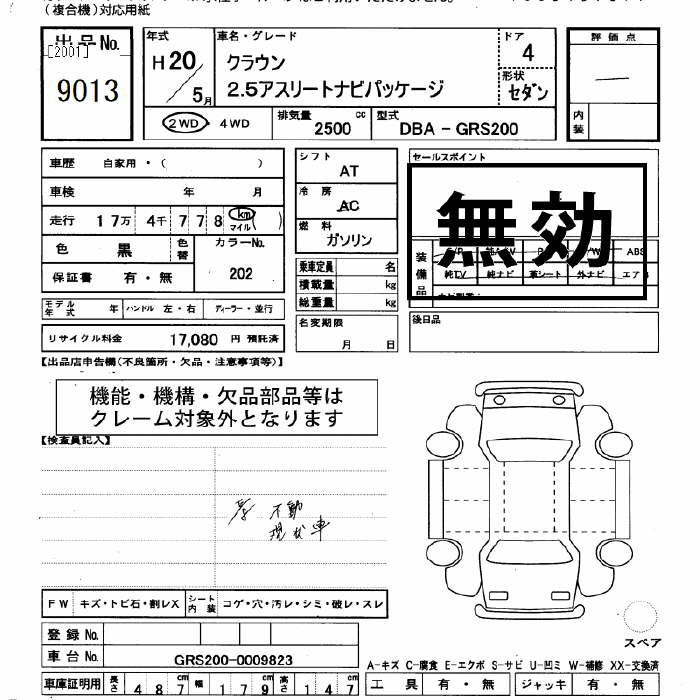 (複合機)対応用紙
出品No.
[2001]
9013
年式
H20
5月
車名・グレード
クラウン
2.5アスリートナビパッケージ
ドア
4
形状
セダン
評価点
内装
2WD・4WD
排気量
2500 cc
型式
DBA - GRS200
車歴 自家用・( )
車検 年 月
走行 17万 4千 7 7 8 km ( )
マイル
色 黒
色替
カラーNo.
202
保証書 有・無
モデル年式 年 ハンドル 左・右 ディーラー・並行
リサイクル料金 17,080 円 預託済
シフト
AT
冷房
AC
燃料
ガソリン
乗車定員 名
積載量 kg
総重量 kg
名変期限
月 日
セールスポイント
無効
装備品
ABS
純TV 純ナビ 革シート 外ナビ エア
後日品
【出品店申告欄(不良箇所・欠品・注意事項等)】
機能・機構・欠品部品等は
クレーム対象外となります
【検査員記入】
不動
現状車
FW キズ・トビ石・割レX
シート内装 コゲ・穴・汚レ・シミ・破レ・スレ
登録No.
車台No. GRS200-0009823
車庫証明用 長さ 487cm 幅 179cm 高さ 147cm
スペア
A-キズ C-腐食 E-エクボ S-サビ U-凹ミ W-補修 XX-交換済
工具 有・無 ジャッキ 有・無